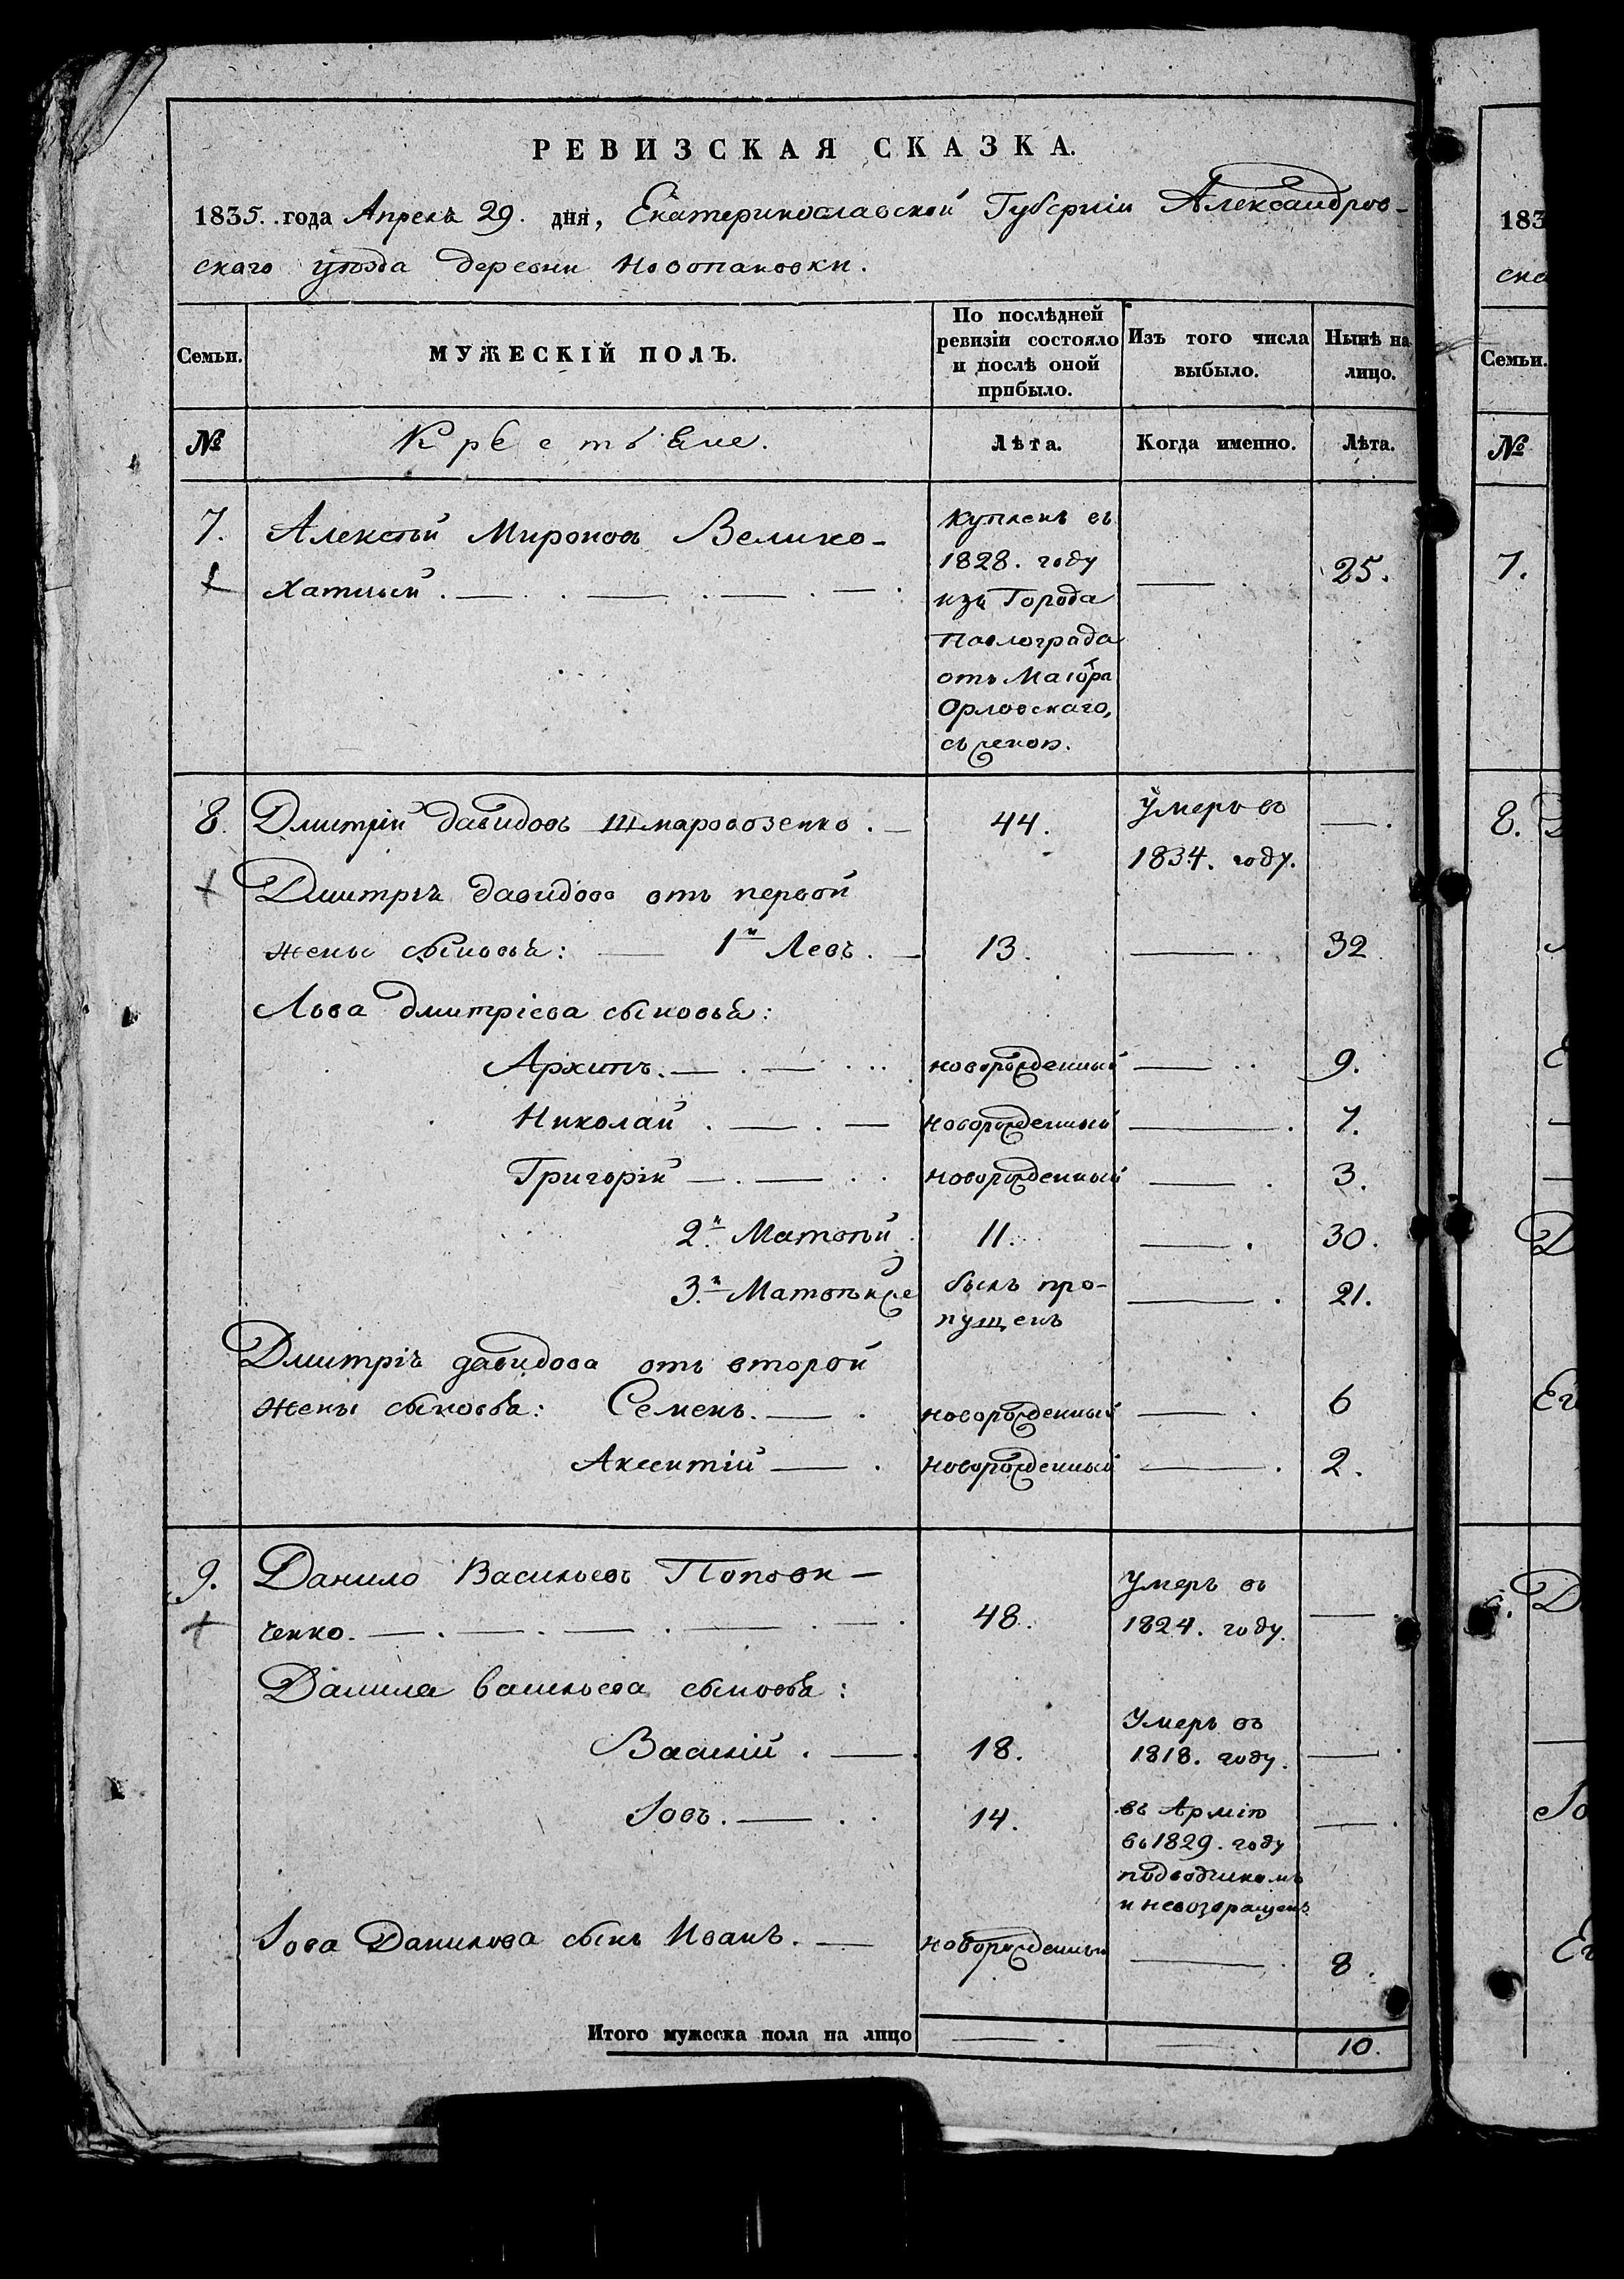 РЕВИЗСКАЯ СКАЗКА.
1835. года Апреля 29. дня, Екатеринославской Губерніи Александров-
скаго уѣзда деревни Новопановки.
Семьи.
МУЖЕСКІЙ ПОЛЪ.
По послѣдней ревизіи состояло и послѣ оной прибыло.
Изъ того числа выбыло.
Нынѣ на лицо.
№
Крестьяне.
Лѣта.
Когда именно.
Лѣта.
7. Алексѣй Миронов Велико-
хатный.
Купленъ въ
1828. году
изъ Города
Павлограда
отъ Маіора
Орловскаго,
съ женою.
25.
8. Дмитрій Давидовъ Шмаровозенко. 44. Умеръ въ
1834. году.
Дмитрія Давидова отъ первой
жены сыновья: 1й Левъ. 13. 32
Льва Дмитріева сыновья:
Архипъ. новорожденный 9.
Николай. новорожденный 7.
Григорій новорожденный 3.
2й Матвѣй 11. 30.
3й Матвѣй же былъ про-
пущенъ 21.
Дмитрія давидова отъ второй
жены сыновья: Семенъ. новорожденный 6
Аксентій новорожденный 2.
9. Данило Васильевъ Попови-
ченко. 48. Умеръ въ
1824. году.
Данила васильева сыновья:
Василій. 18. Умеръ въ
1818. году.
Іовъ. 14. въ Армію
въ 1829. году
подводчикомъ
и невозвращенъ
Іова Данилова сынъ Иванъ. новорожденный 8.
Итого мужеска пола на лицо 10.
183
ска
Семьи.
№
7.
8.